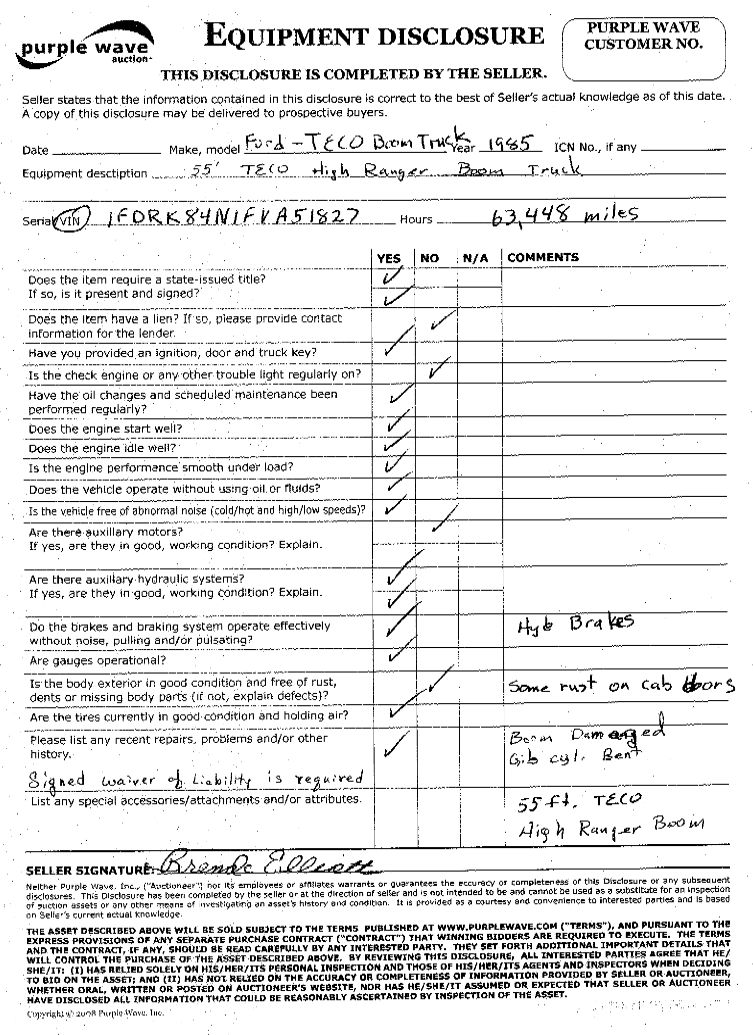 purple wave
auction
EQUIPMENT DISCLOSURE
PURPLE WAVE
CUSTOMER NO.
THIS DISCLOSURE IS COMPLETED BY THE SELLER.
Seller states that the information contained in this disclosure is correct to the best of Seller's actual knowledge as of this date.
A copy of this disclosure may be delivered to prospective buyers.
Date Make, model Ford - TECO Boom Truck Year 1985 ICN No., if any
Equipment desctiption 55' TECO High Ranger Boom Truck
Serial VIN 1FDRK84N1FVA51827 Hours 63,448 miles
YES NO N/A COMMENTS
Does the item require a state-issued title? ✓
If so, is it present and signed? ✓
Does the item have a lien? If so, please provide contact ✓
information for the lender.
Have you provided an ignition, door and truck key? ✓
Is the check engine or any other trouble light regularly on? ✓
Have the oil changes and scheduled maintenance been ✓
performed regularly?
Does the engine start well? ✓
Does the engine idle well? ✓
Is the engine performance smooth under load? ✓
Does the vehicle operate without using oil or fluids? ✓
Is the vehicle free of abnormal noise (cold/hot and high/low speeds)? ✓
Are there auxiliary motors? ✓
If yes, are they in good, working condition? Explain.
Are there auxiliary hydraulic systems? ✓
If yes, are they in good, working condition? Explain. ✓
Do the brakes and braking system operate effectively ✓ Hyb Brakes
without noise, pulling and/or pulsating?
Are gauges operational? ✓
Is the body exterior in good condition and free of rust, ✓ Some rust on cab doors
dents or missing body parts (if not, explain defects)?
Are the tires currently in good condition and holding air? ✓
Please list any recent repairs, problems and/or other ✓ Boom Damanged
history. Gib cyl. Bent
Signed waiver of Liability is required
List any special accessories/attachments and/or attributes. 55 ft. TECO
High Ranger Boom
SELLER SIGNATURE: Brenda Elliott
Neither Purple Wave, Inc., ("Auctioneer") nor its employees or affiliates warrants or guarantees the accuracy or completeness of this Disclosure or any subsequent
disclosures. This Disclosure has been completed by the seller or at the direction of seller and is not intended to and cannot be used as a substitute for an inspection
of auction assets or any other means of investigating an asset's history and condition. It is provided as a courtesy and convenience to interested parties and is based
on Seller's current actual knowledge.
THE ASSET DESCRIBED ABOVE WILL BE SOLD SUBJECT TO THE TERMS PUBLISHED AT WWW.PURPLEWAVE.COM ("TERMS"), AND PURSUANT TO THE
EXPRESS PROVISIONS OF ANY SEPARATE PURCHASE CONTRACT ("CONTRACT") THAT WINNING BIDDERS ARE REQUIRED TO EXECUTE. THE TERMS
AND THE CONTRACT, IF ANY, SHOULD BE READ CAREFULLY BY ANY INTERESTED PARTY. THEY SET FORTH ADDITIONAL IMPORTANT DETAILS THAT
WILL CONTROL THE PURCHASE OF THE ASSET DESCRIBED ABOVE. BY REVIEWING THIS DISCLOSURE, ALL INTERESTED PARTIES AGREE THAT HE/
SHE/IT: (I) HAS RELIED SOLELY ON HIS/HER/ITS PERSONAL INSPECTION AND THOSE OF HIS/HER/ITS AGENTS AND INSPECTORS WHEN DECIDING
TO BID ON THE ASSET; AND (II) HAS NOT RELIED ON THE ACCURACY OR COMPLETENESS OF ANY INFORMATION PROVIDED BY SELLER OR AUCTIONEER,
WHETHER ORAL, WRITTEN OR POSTED ON AUCTIONEER'S WEBSITE, NOR HAS HE/SHE/IT ASSUMED OR EXPECTED THAT SELLER OR AUCTIONEER
HAVE DISCLOSED ALL INFORMATION THAT COULD BE REASONABLY ASCERTAINED BY INSPECTION OF THE ASSET.
Copyright © 2008 Purple Wave, Inc.